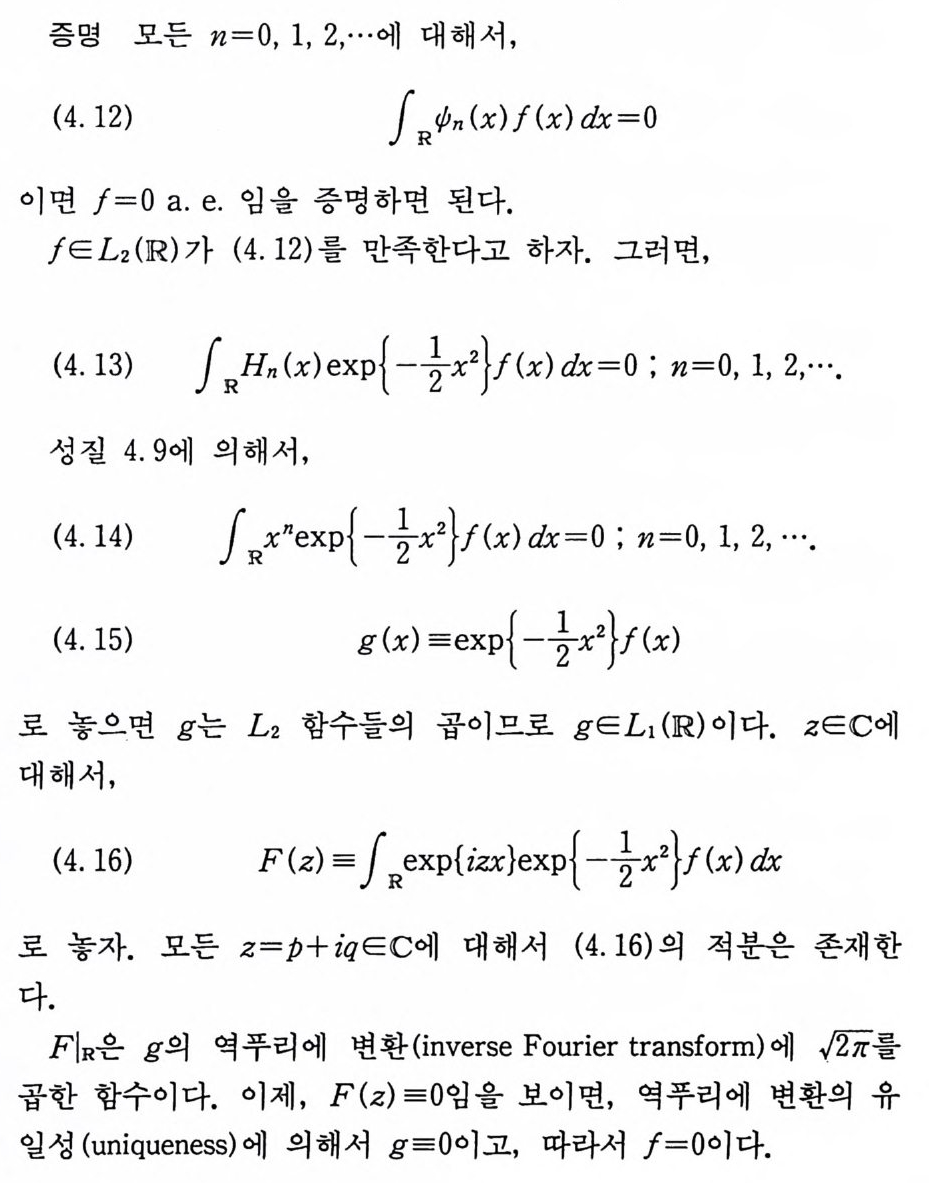 증명 모든 n=0, 1, 2,⋯에 대해서,
(4. 12) ∫_ℝ ψₙ(x) f(x) dx=0
이면 f=0 a. e. 임을 증명하면 된다.
f∈L₂(ℝ)가 (4. 12)를 만족한다고 하자. 그러면,
(4. 13) ∫_ℝ Hₙ(x)exp{−1/2 x²}f(x) dx=0 ; n=0, 1, 2,⋯.
성질 4. 9에 의해서,
(4. 14) ∫_ℝ xⁿexp{−1/2 x²}f(x) dx=0 ; n=0, 1, 2, ⋯.
(4. 15) g(x)≡exp{−1/2 x²}f(x)
로 놓으면 g는 L₂ 함수들의 곱이므로 g∈L₁(ℝ)이다. z∈ℂ에
대해서,
(4. 16) F(z)≡∫_ℝ exp{izx}exp{−1/2 x²}f(x) dx
로 놓자. 모든 z=p+iq∈ℂ에 대해서 (4. 16)의 적분은 존재한
다.
F|_ℝ은 g의 역푸리에 변환(inverse Fourier transform)에 √2π를
곱한 함수이다. 이제, F(z)≡0임을 보이면, 역푸리에 변환의 유
일성(uniqueness)에 의해서 g≡0이고, 따라서 f=0이다.